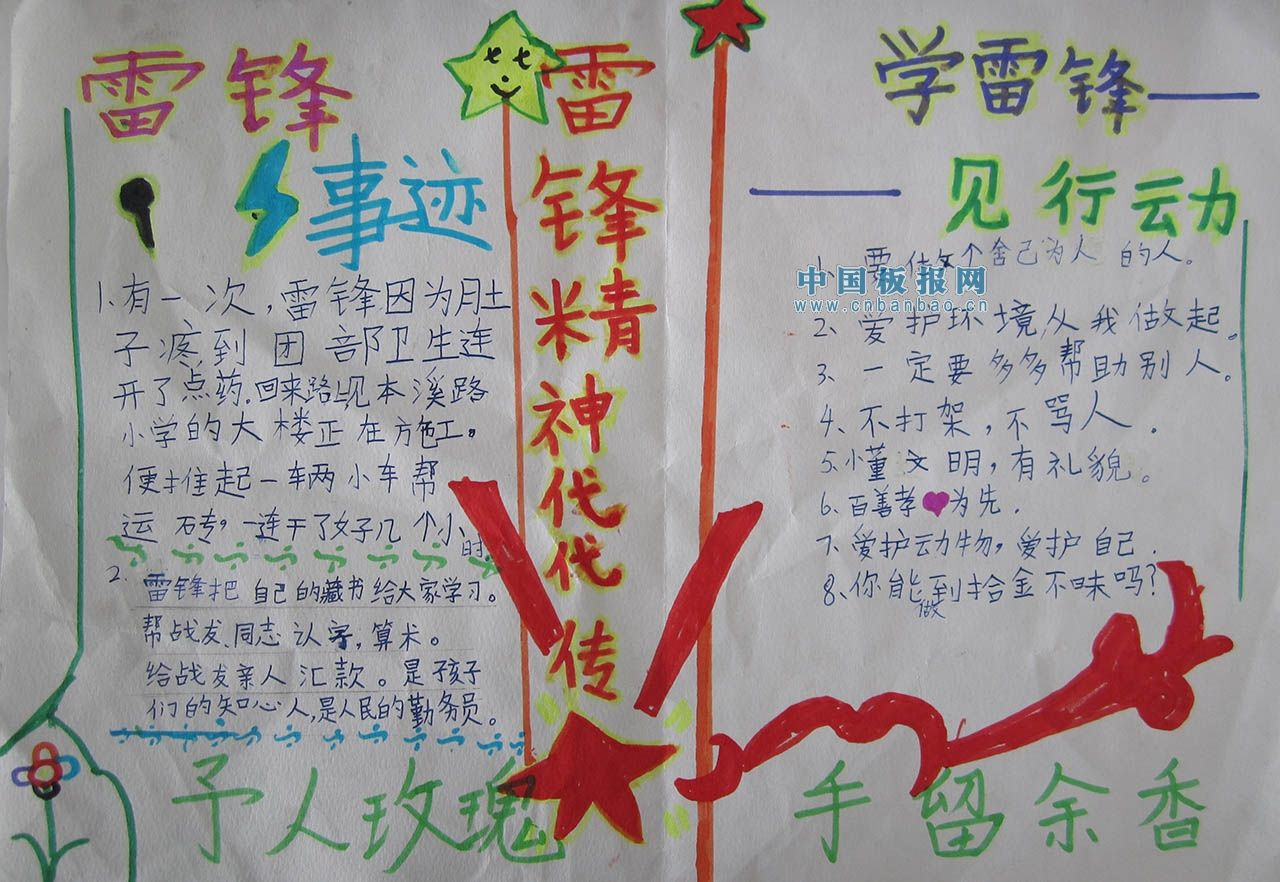 雷锋
事迹
1、有一次，雷锋因为肚
子疼，到团部卫生连
开了点药，回来路上见本溪路
小学的大楼正在方施工。
便推起一车两小车帮
运砖，一连干了好几个小
时
2、雷锋把自己的藏书给大家学习。
帮战友、同志认字，算术。
给战友亲人汇款。是孩子
们的知心人，是人民的勤务员。
雷锋精神代代传
学雷锋——
——见行动
1、要做个舍己为人的人。
中国板报网
www.cnbanbao.cn
2、爱护环境，从我做起。
3、一定要多多帮助别人。
4、不打架，不骂人．
5、小董文明，有礼貌。
6、百善孝为先．
7、爱护动物，爱护自己．
8、你能做到拾金不昧吗？
予人玫瑰 手留余香